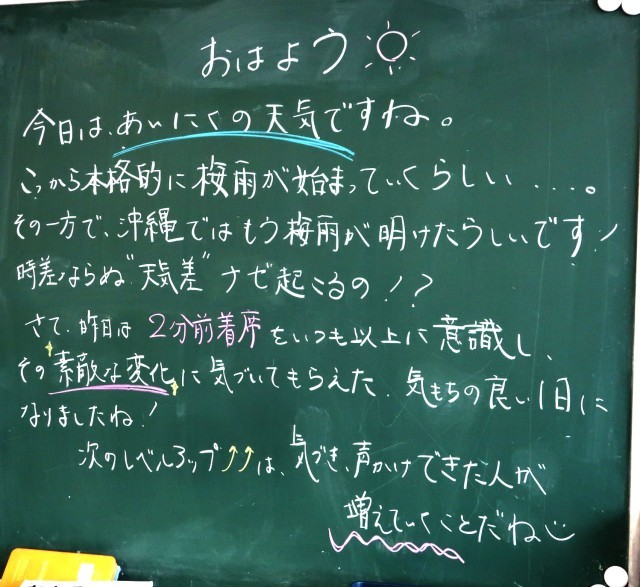 おはよう
今日は、あいにくの天気ですね。
こっから本格的に梅雨が始まっていくらしい....。
その一方で、沖縄ではもう梅雨が明けたらしいです!
時差ならぬ"天気差"ナゼ起こるの!?
さて、昨日は2分前着席をいつも以上に意識し、
その素敵な変化に気づいてもらえた、気もちの良い1日に
なりましたね!
次のレベルアップ↑↑は、気づき、声かけできた人が
増えていくことだね